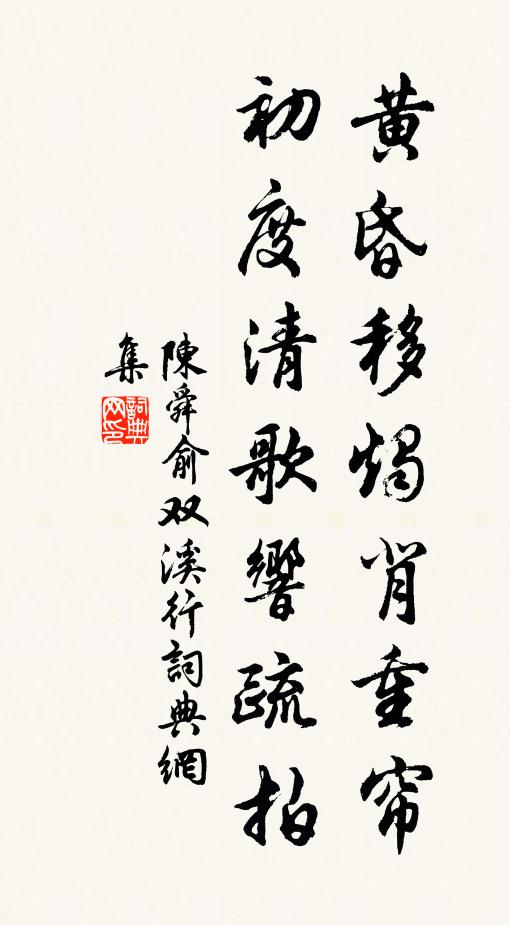 黄昏移燭背重帘
初度清歌響疏拍
陳舜俞双溪行詞典網
集
詞典
网印